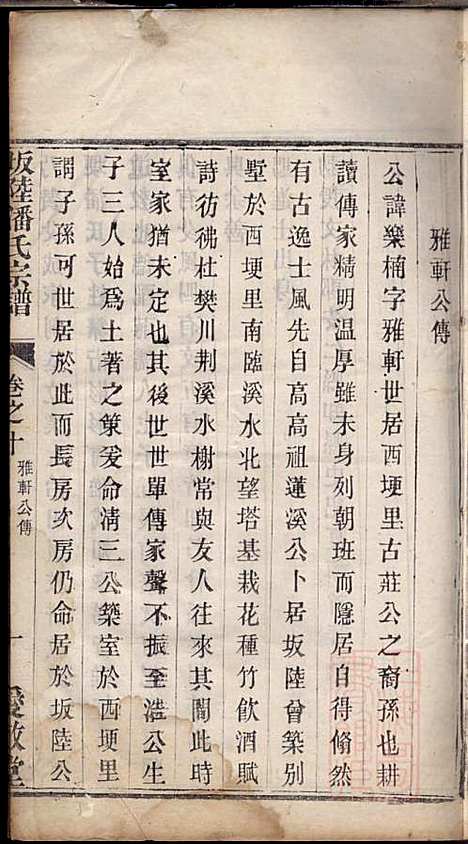 雅軒公傳
公諱樂楠字雅軒世居西埂里古莊公之裔孫也耕
讀傳家精明溫厚雖未身列朝班而隱居自得翛然
有古逸士風先自高高祖蓮溪公卜居坂陸曾築別
墅於西埂里南臨溪水北望塔基栽花種竹飲酒賦
詩彷彿杜樊川荆溪水榭常與友人往來其閒此時
室家猶未定也其後世世單傳家聲不振至浩公生
子三人始爲土著之策爰命淸三公築室於西埂里
謂子孫可世居於此而長房次房仍命居於坂陸公
坂陸潘氏宗譜
卷之十
雅軒公傳
一
敘堂